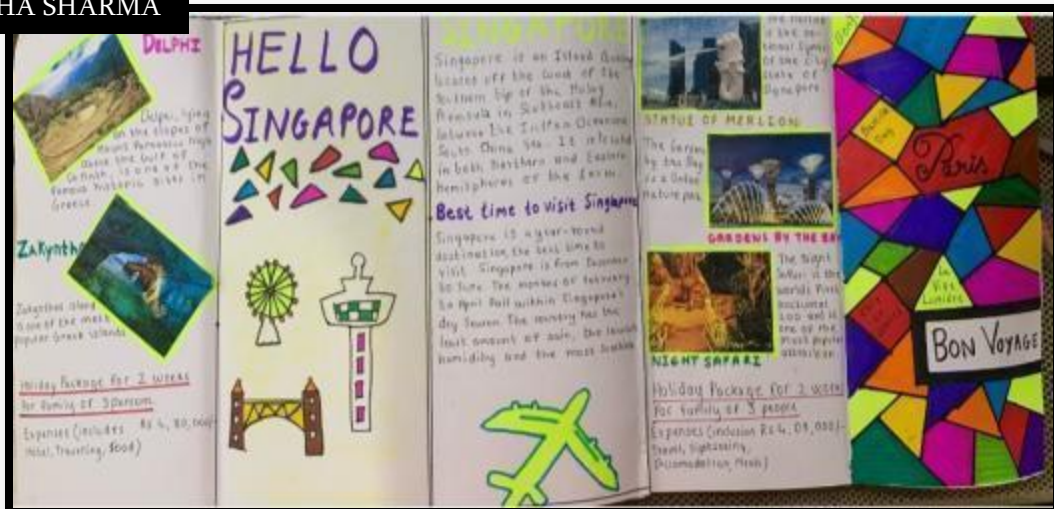 HA SHARMA
DELPHI
Delpi, lying
on the slopes of
Mount Parnassus high
above the Gulf of
is one of the
famous historic sites in
Greece
Zakyntho
Zakynthos island
is one of the most
popular Greek islands
Holiday Package for 2 weeks
for family of 3 person
Expenses (includes Rs 4, 80,000/-
Hotel, Traveling, food)
HELLO
SINGAPORE
SINGAPORE
Singapore is an Island Country
located off the coast of the
Southern tip of the Malay
Peninsula in Southeast Asia,
between the Indian Ocean and
South China Sea. It is located
in both Northern and Eastern
hemispheres of the Earth.
Best time to visit Singapore
Singapore is a year-round
destination, the best time to
visit Singapore is from December
to June. The months of February
to April fall within Singapore's
dry season. The country has the
least amount of rain, the lowest
humidity and the most
is the
of the City
state of
STATUE OF MERLION
The Gardens
by the Bay
is a
nature park
GARDENS BY THE BAY
The Night
Safari is the
worlds first
nocturnal
zoo and is
one of the
most popular
attraction
NIGHT SAFARI
Holiday Package for 2 weeks
for family of 3 people
Expenses (inclusion Rs 4, 08,000/-
Travel, Sightseeing,
Accomodation, Meals)
Paris
La
Ville
Lumière
BON VOYAGE